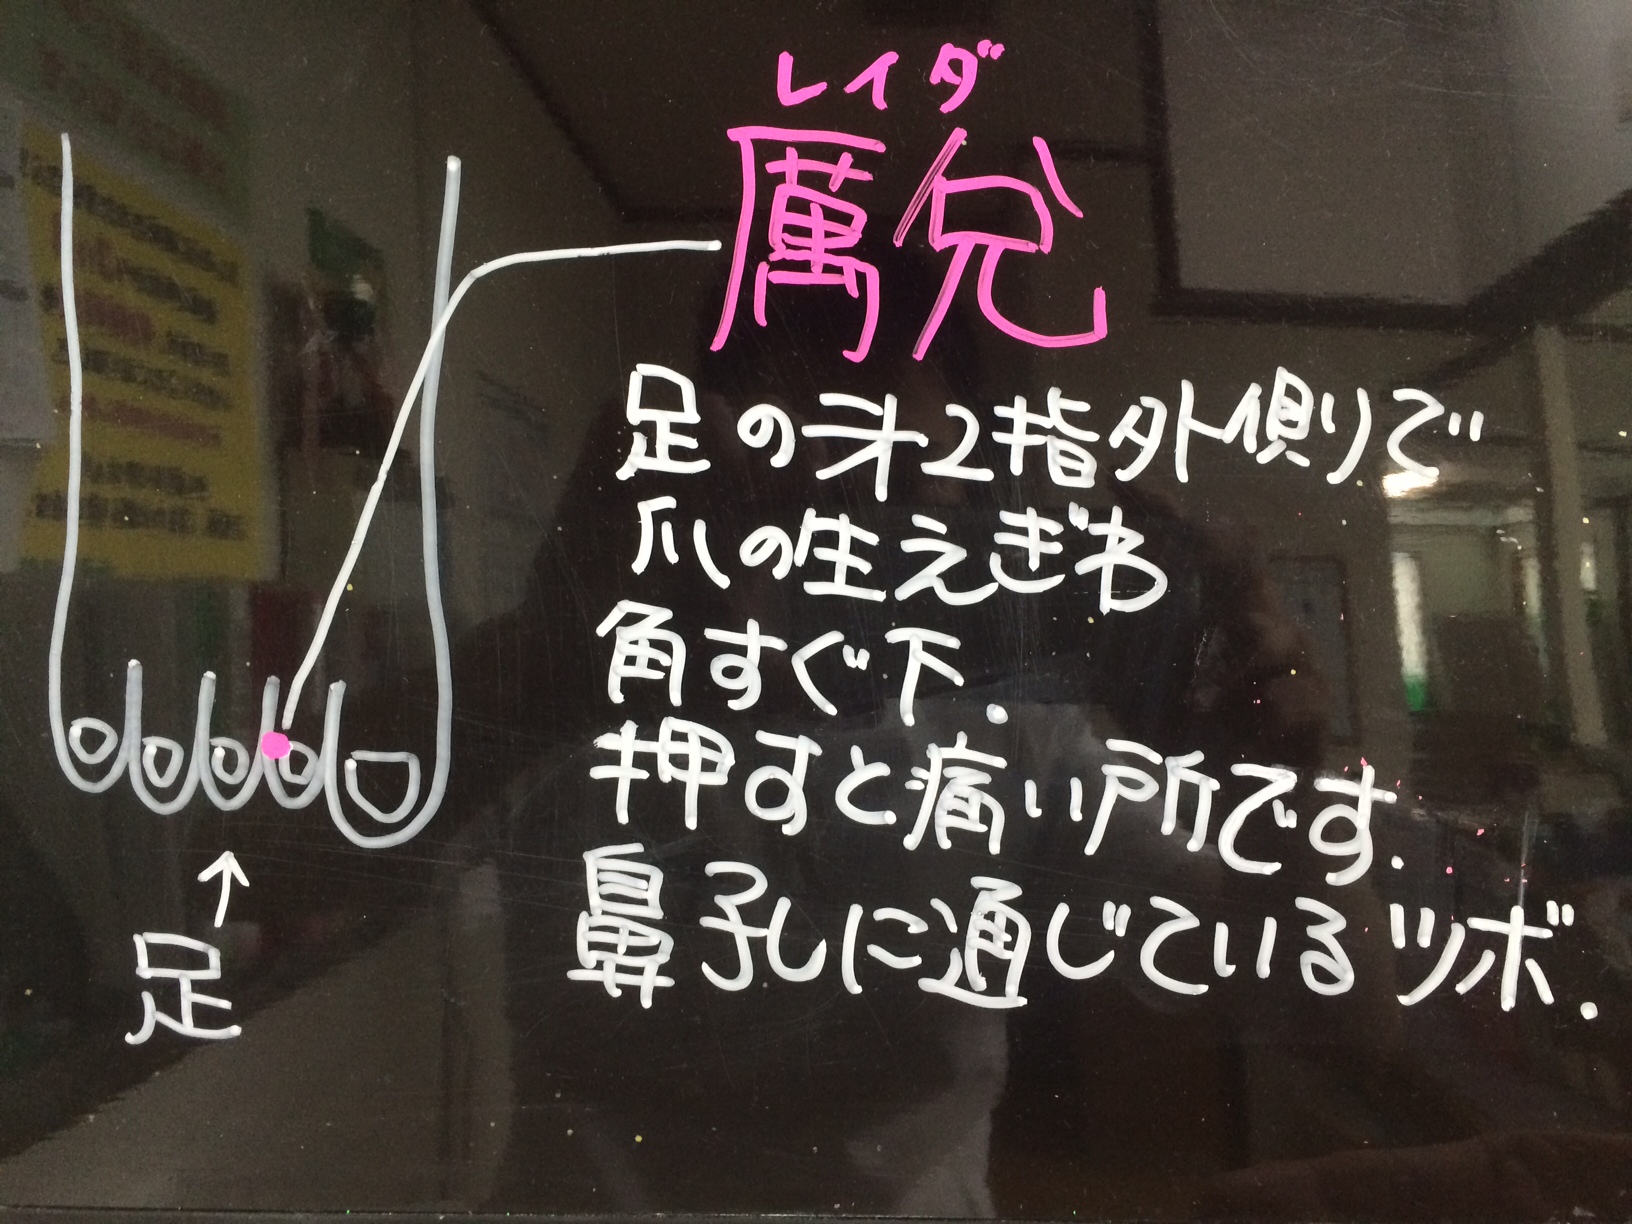 レイダ
厲兌
足の才2指外側りで
爪の生えぎわ
角すぐ下.
押すと痛い所です.
鼻孔に通じているツボ.
↑
足